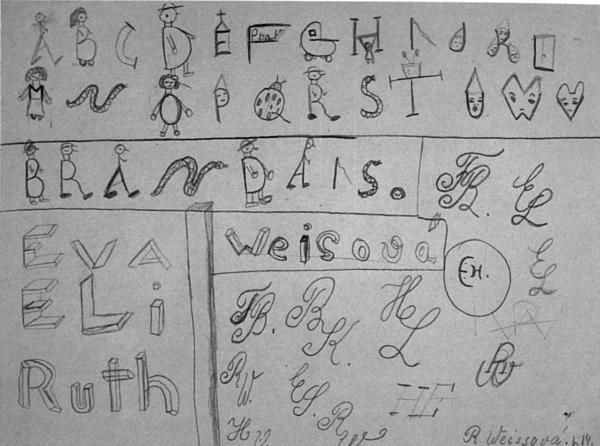 A B C D E F G H I J K L
M N O P R S T U W V
BRANDAIS.
EVA
ELi
Ruth
Weisová
FB.
EL
EL
EH.
RW
FB.
BK.
HL
RW.
ES.
RW
HE
HV
R. Weissová.